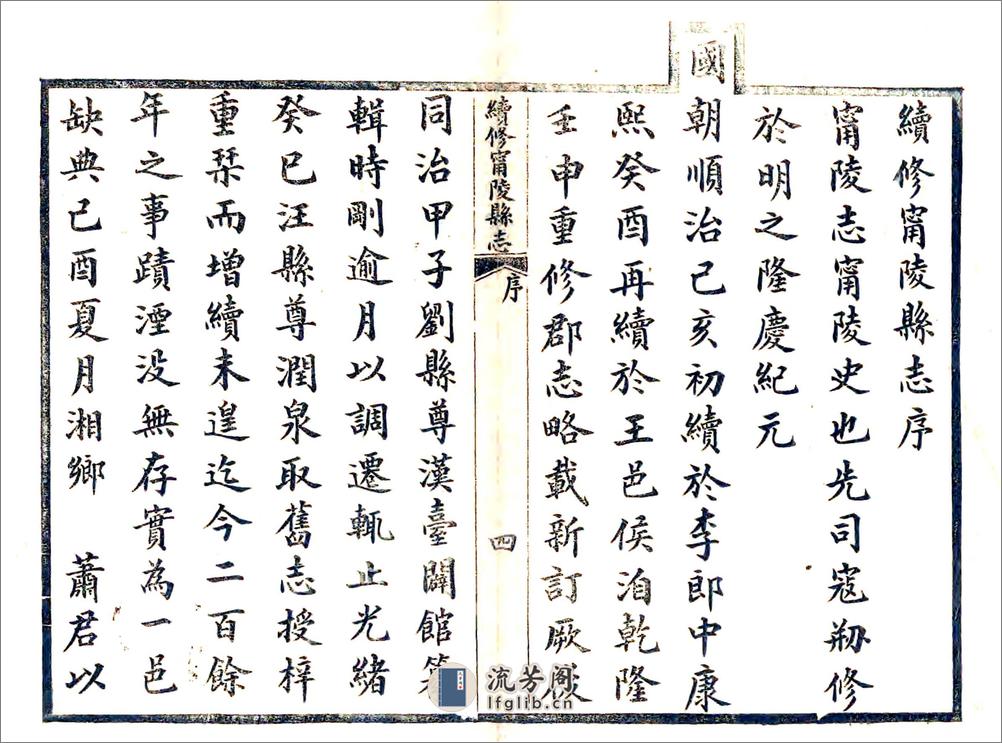 續修甯陵縣志序
甯陵志甯陵史也先司寇剏修
於明之隆慶紀元
國朝順治己亥初續於李郎中康
熙癸酉再續於王邑侯洎乾隆
壬申重修郡志略載新訂厥
續修甯陵縣志 序 四
同治甲子劉縣尊漢臺闢館
輯時剛逾月以調遷輒止光緒
癸巳汪縣尊潤泉取舊志授梓
重栞而增續未遑迄今二百餘
年之事蹟湮没無存實為一邑
缺典己酉夏月湘鄉 蕭君以
流芳阁
lfglib.cn